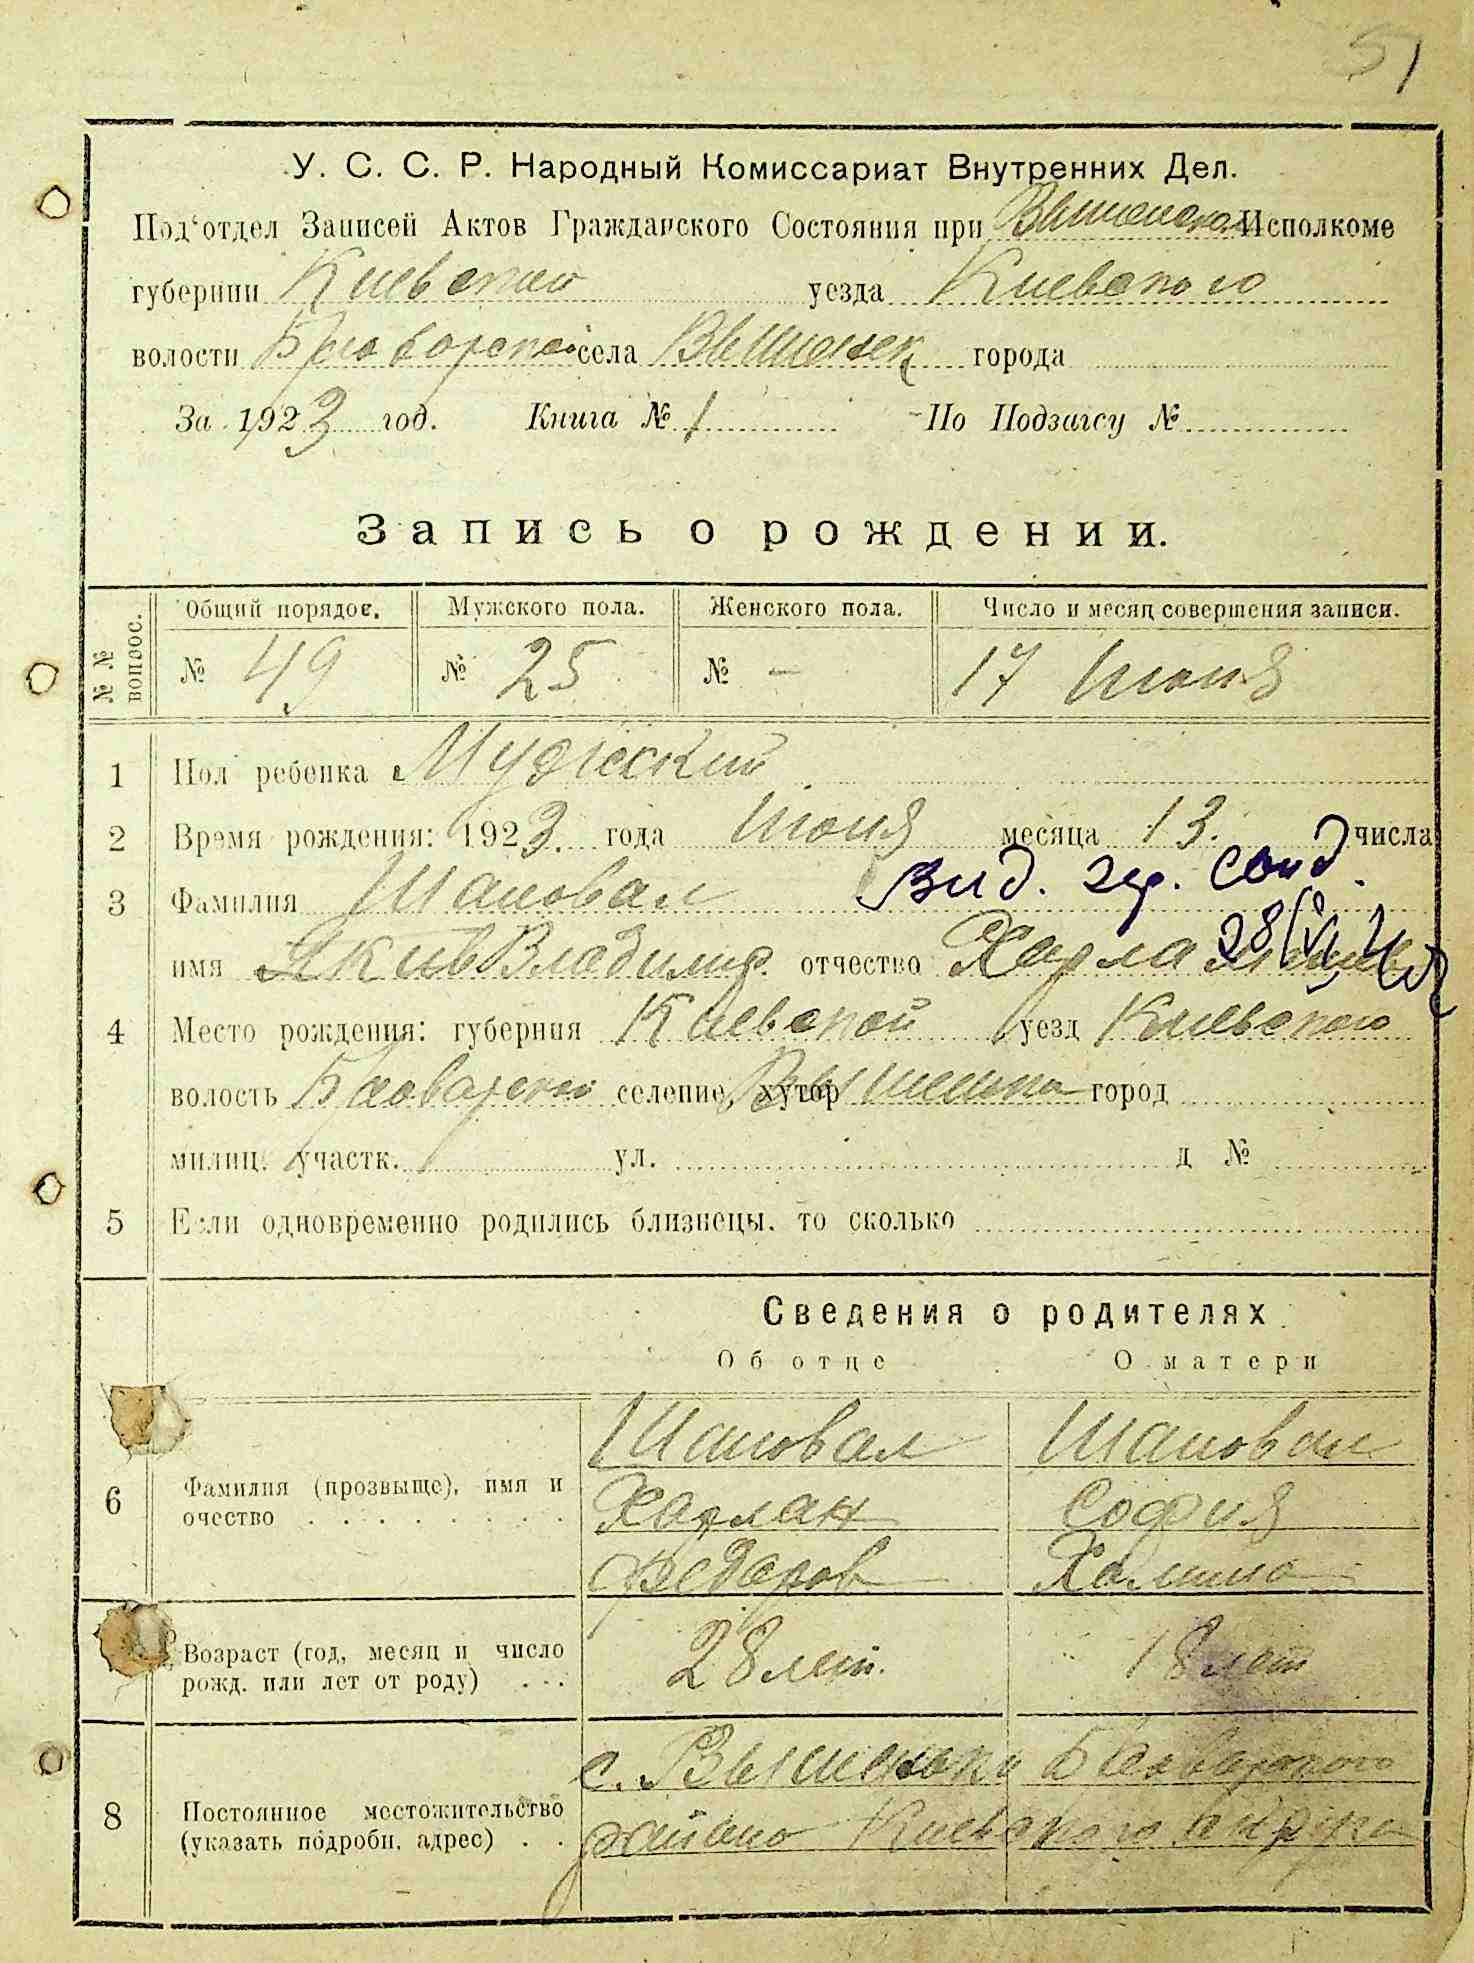 51
У. С. С. Р. Народный Комиссариат Внутренних Дел.
Под‘отдел Записей Актов Гражданского Состояния при Вышенском Исполкоме
губернии Киевской уезда Киевского
волости Броварской села Вышенек города
За 1923 год. Книга № 1 По Подзагсу №
Запись о рождении.
№ № вопрос. Общий порядок. Мужского пола. Женского пола. Число и месяц совершения записи.
№ 49 № 25 № - 17 Июня
1 Пол ребенка Мужеский
2 Время рождения: 1923. года Июня месяца 13. числа
3 Фамилия Шаповал
Вид. свід.
28/VI
имя Владимир отчество
4 Место рождения: губерния Киевской уезд Киевского
волость Броварской селение, хутор Вышеньки город
милиц. участк. ул. д №
5 Если одновременно родились близнецы, то сколько
Сведения о родителях
Об отце О матери
6 Фамилия (прозвыще), имя и очество
Шаповал Шаповал
Харлан София
Федоров
Возраст (год, месяц и число рожд. или лет от роду) 28 лет. 18 лет
8 Постоянное местожительство (указать подробн. адрес)
с. Вышеньки Броварского
района Киевского округа